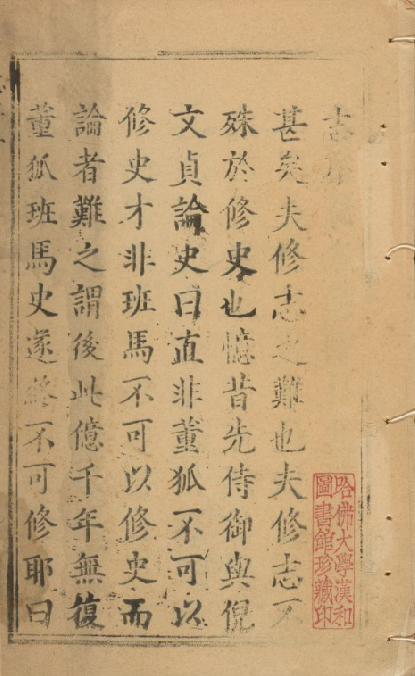 志
甚矣夫修志之難也夫修志不
殊於修史也憶昔先侍御與倪
文貞論史曰直非董狐不可以
修史才非班馬不可以修史而
論者難之謂後此億千年無復
董狐班馬史遂終不可修耶曰
哈佛大學漢和
圖書館珍藏印